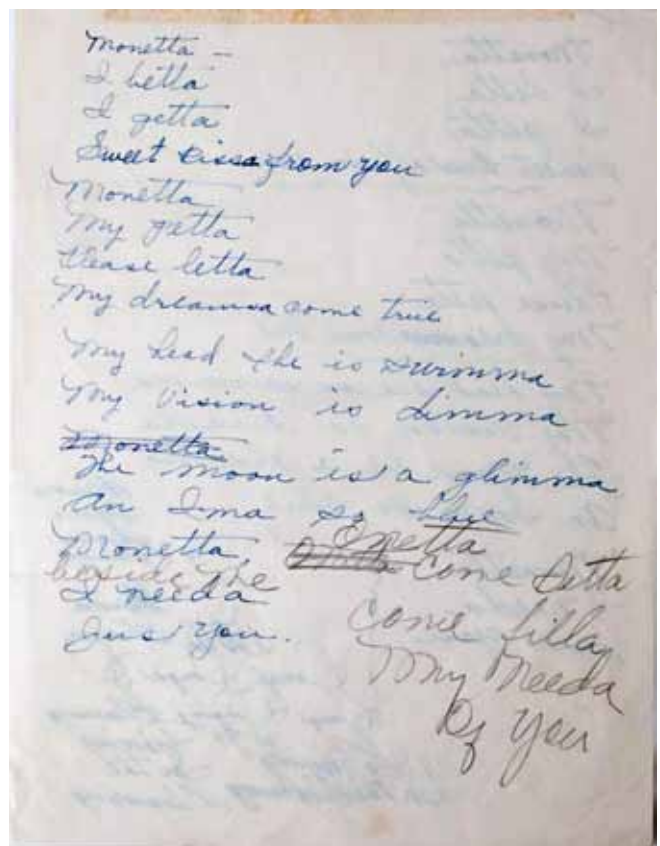 Monetta –
I betta
I getta
Sweet kissa from you
Monetta
My petta
Please letta
My dreamsa come true
My head she is swimma
My vision is dimma
Monetta
The moon is a glimma
An Ima so blue
Monetta
Onetta
come setta
beside the
I needa
Jus you.
come filla
My needa
Of you